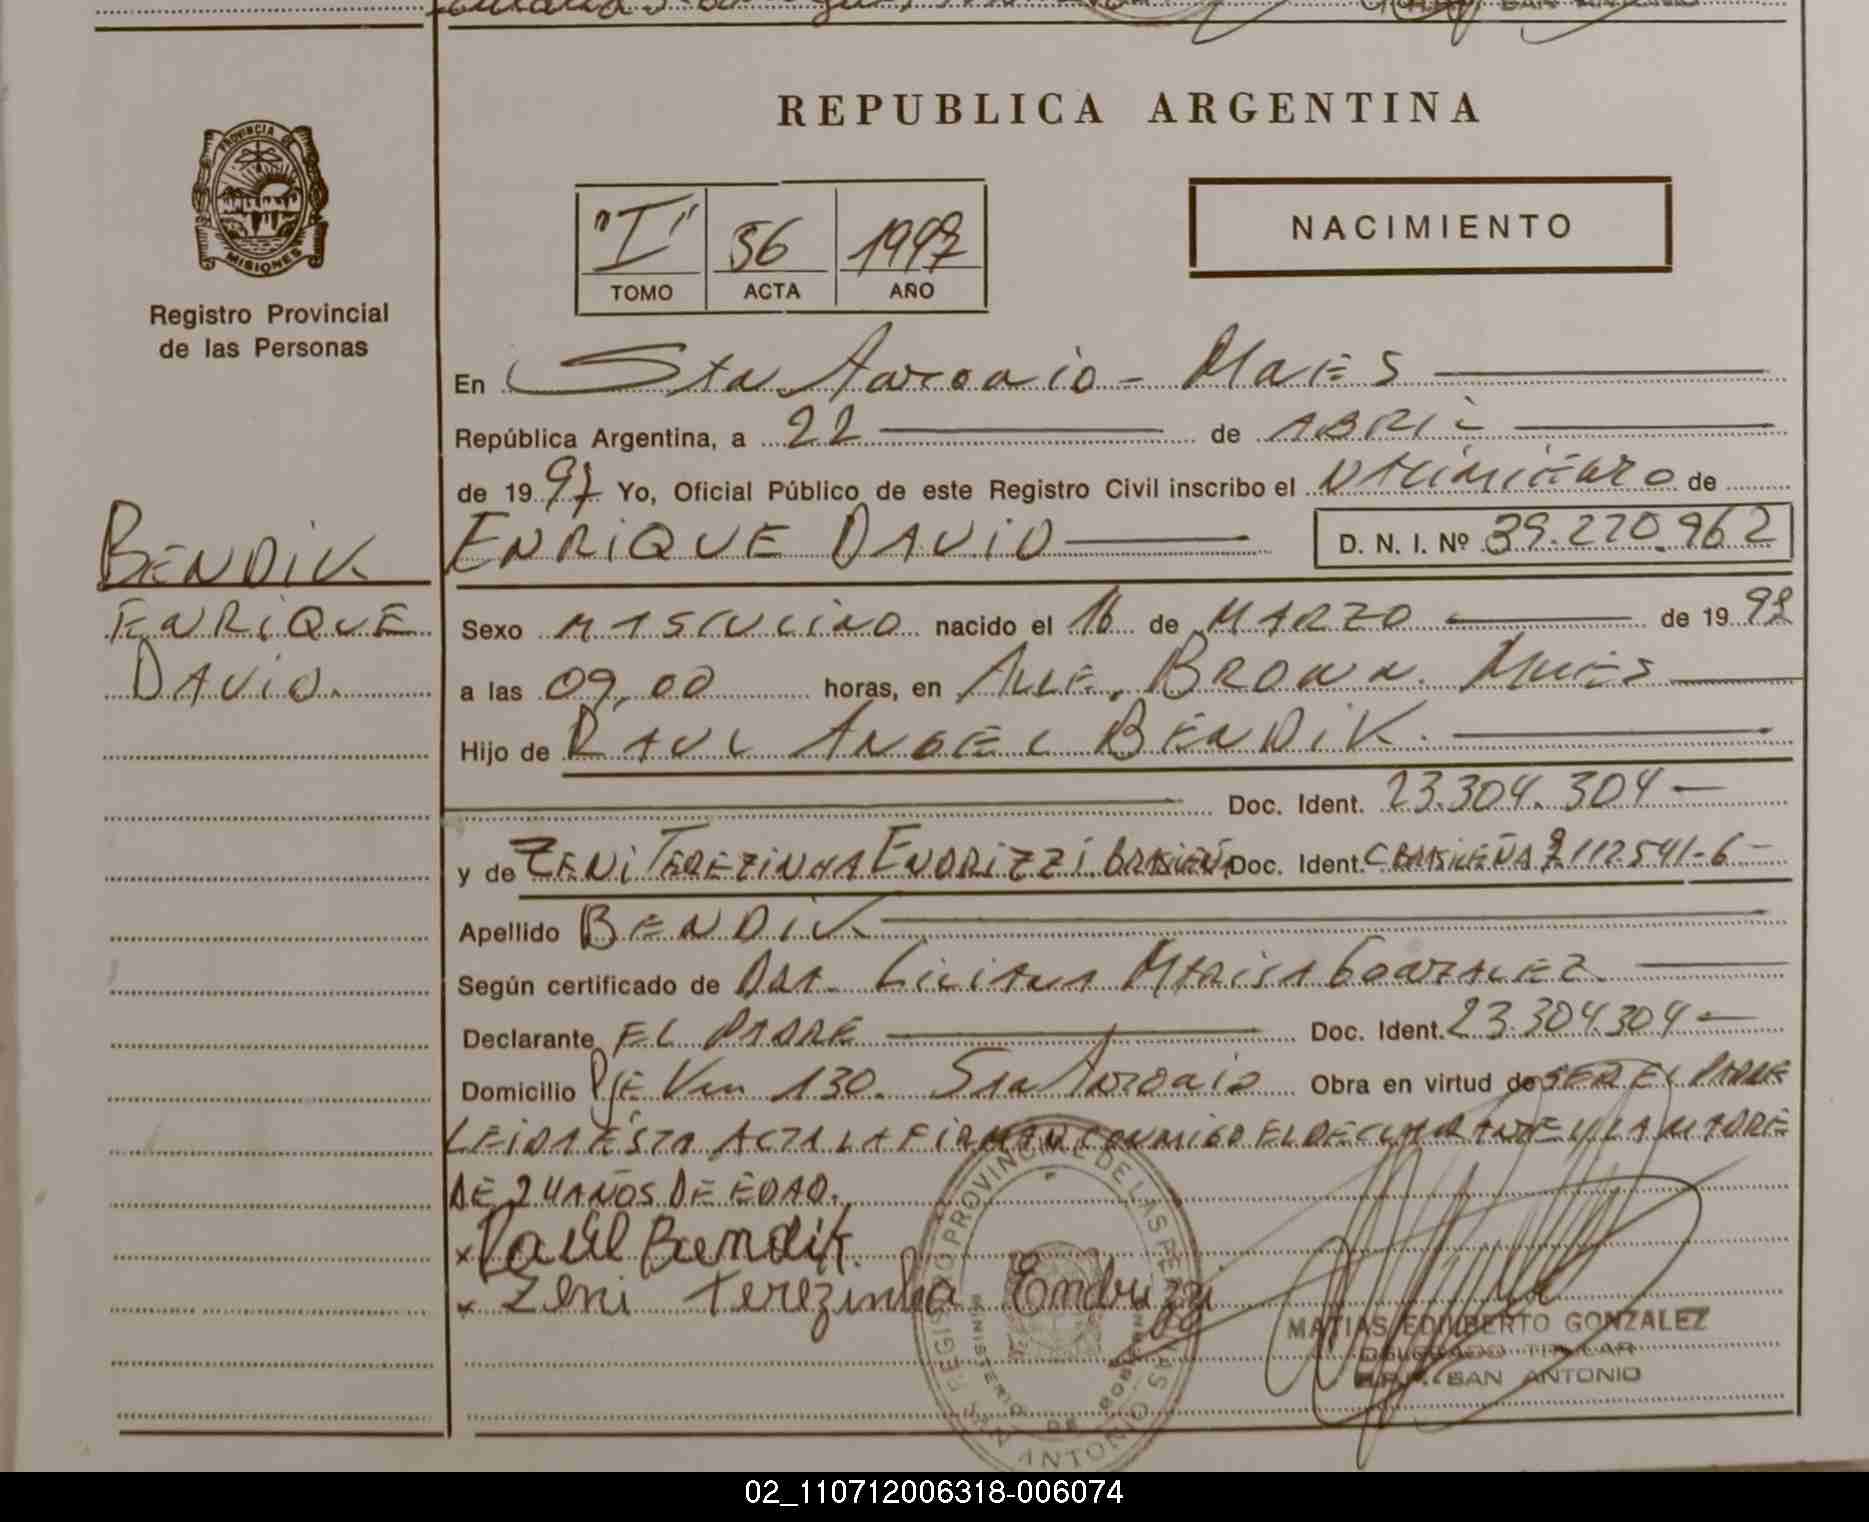 REPUBLICA ARGENTINA
PROVINCIA DE
MISIONES
Registro Provincial
de las Personas
"I" 56 1997
TOMO ACTA AÑO
NACIMIENTO
En Sn Antonio - Mnes
República Argentina, a 22 de ABRIL
de 1997 Yo, Oficial Público de este Registro Civil inscribo el NACIMIENTO de
BENDIK
ENRIQUE DAVID D. N. I. Nº 39.270.962
ENRIQUE
DAVID.
Sexo MASCULINO nacido el 16 de MARZO de 19
a las 09,00 horas, en Alte. BROWN. Mnes
Hijo de RAUL ANGEL BENDIK.
Doc. Ident. 23.304.304
y de ZENI TEREZINHA ENDRIZZI. BRASILEÑA Doc. Ident. C BRASILEÑA 112.541-6
Apellido BENDIK
Según certificado de DRA. LILIANA MARISA GONZALEZ
Declarante EL PADRE Doc. Ident. 23.304304
Domicilio PJE Km 130. Sn Antonio Obra en virtud de SER EL PADRE
LEIDA ÉSTA ACTA LA FIRMAN CONMIGO EL DECLARANTE Y LA MADRE
DE 24 AÑOS DE EDAD.
x Raúl Bendik.
x Zeni Terezinha Endrizzi
REGISTRO PROVINCIAL DE LAS PERSONAS
MINISTERIO DE GOBIERNO
SAN ANTONIO
MATIAS EDILBERTO GONZALEZ
DELEGADO TITULAR
R.P.P. SAN ANTONIO
02_110712006318-006074